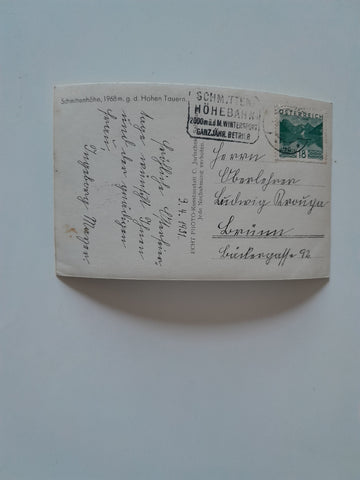 Schmittenhöhe, 1968 m, g. d. Hohen Tauern.
SCHMITTEN
HÖHEBAHN
2000 m ü.d.M. WINTERSPORT
GANZJÄHR. BETRIEB
ÖSTERREICH
18
9./4. 1931.
Herzliche Osterfeier-
tage wünscht Ihnen
und der gnädigen
Frauen,
Ingeborg Mayer
ECHT PHOTO-Kunstanstalt C. Jurischek
Jede Nachahmung verboten.
Herrn
Oberlehrer
Ludwig
Brünn
Bäckergasse 92